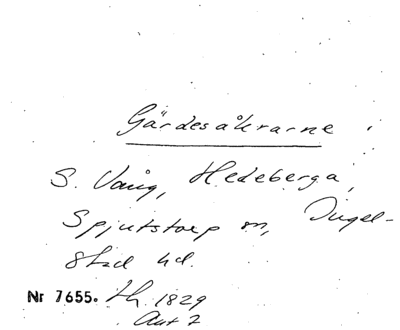 Gärdesåkrarne
S. Vång, Hedeberga,
Spjutstorp sn, Ingel-
stad hd.
Nr 7655. lh. 1829
Akt 2